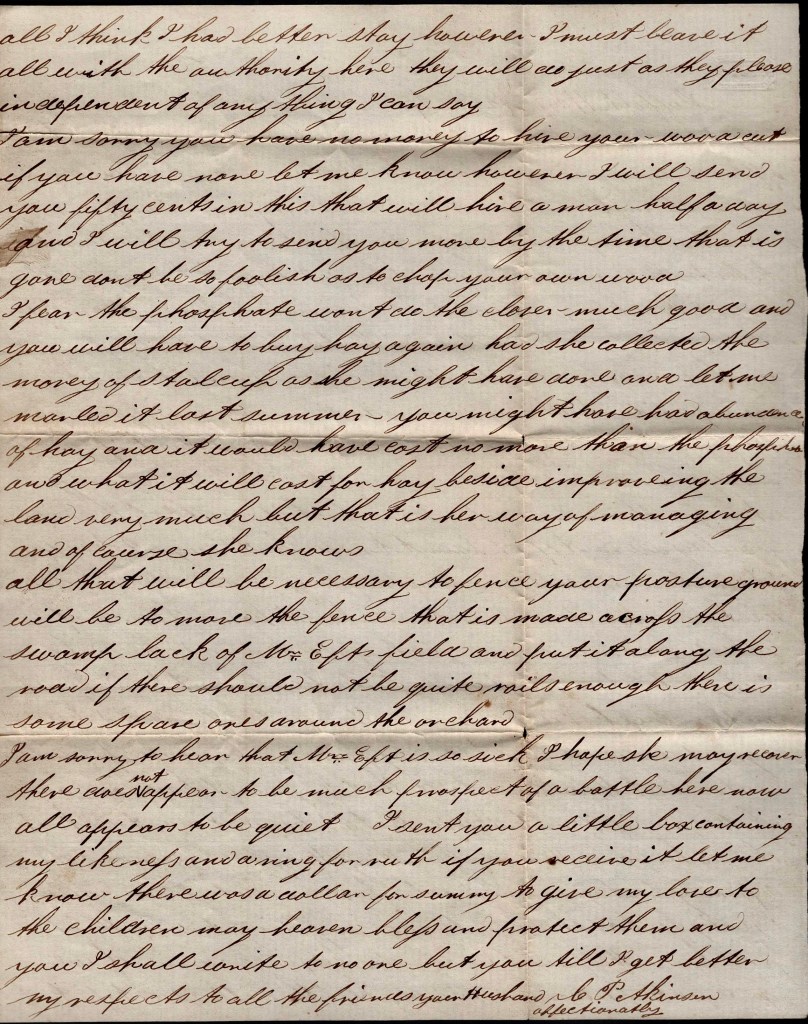 all I think I had better stay however I must leave it
all with the authority here they will do just as they please
independent of any thing I can say
I am sorry you have no money to hire your wood cut
if you have none let me know however I will send
you fifty cents in this that will hire a man half a day
and I will try to send you more by the time that is
gone dont be so foolish as to chop your own wood
I fear the phosphate wont do the clover much good and
you will have to buy hay again had she collected the
money of Stalcup as she might have done and let me
marled it last summer you might have had abundance
of hay and it would have cost no more than the phosphate
and what it will cost for hay beside improveing the
land very much but that is her way of managing
and of course she knows
all that will be necessary to fence your pasture ground
will be to move the fence that is made across the
swamp back of Mr Efts field and put it along the
road if there should not be quite rails enough there is
some spare ones around the orchard
I am sorry to hear that Mrs Eft is so sick I hope she may recover
there does not appear to be much prospect of a battle here now
all appears to be quiet I sent you a little box containing
my likeness and a ring for ruth if you receive it let me
know there was a dollar for summy to give my love to
the children may heaven bless and protect them and
you I shall write to no one but you till I get better
my respects to all the friends your Husband C P Atkinson
affectionately